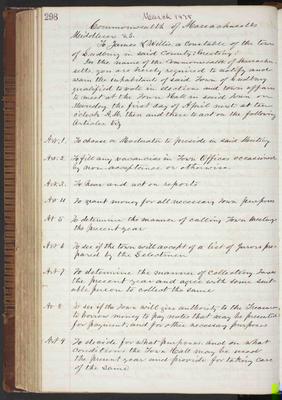 298
March 1878
Commonwealth of Massachusetts
Middlesex ss.
To James R Willis a Constable of the town
of Sudbury in said County Greeting.
In the name of the Commonwealth of Massachu
setts, you are hereby required to notify and
warn the inhabitants of said Town of Sudbury
qualified to vote in elections and town affairs
to meet at the Town Hall in said town on
Monday the first day of April next at ten
o'clock A.M. then and there to act on the following
Articles viz
Art 1. To choose a Moderator to preside in said Meeting
Art 2. To fill any vacancies in Town Offices occasioned
by non-acceptance or otherwise
Art 3. To hear and act on reports
Art 4 To grant money for all necessary town purposes
Art 5 To determine the manner of calling Town Meetings
the present year
Art 6 To see if the town will accept of a list of Jurors pre
pared by the Selectmen
Art 7 To determine the manner of Collecting Taxes
the present year and agree with some suit
able person to collect the same
Ar 8 To see if the town will give authority to the Treasurer
to borrow money to pay notes that may be presented
for payment, and for other necessary purposes
Art 9 To decide for what purposes and on what
Conditions the Town Hall may be used
the present year and provide for taking care
of the same